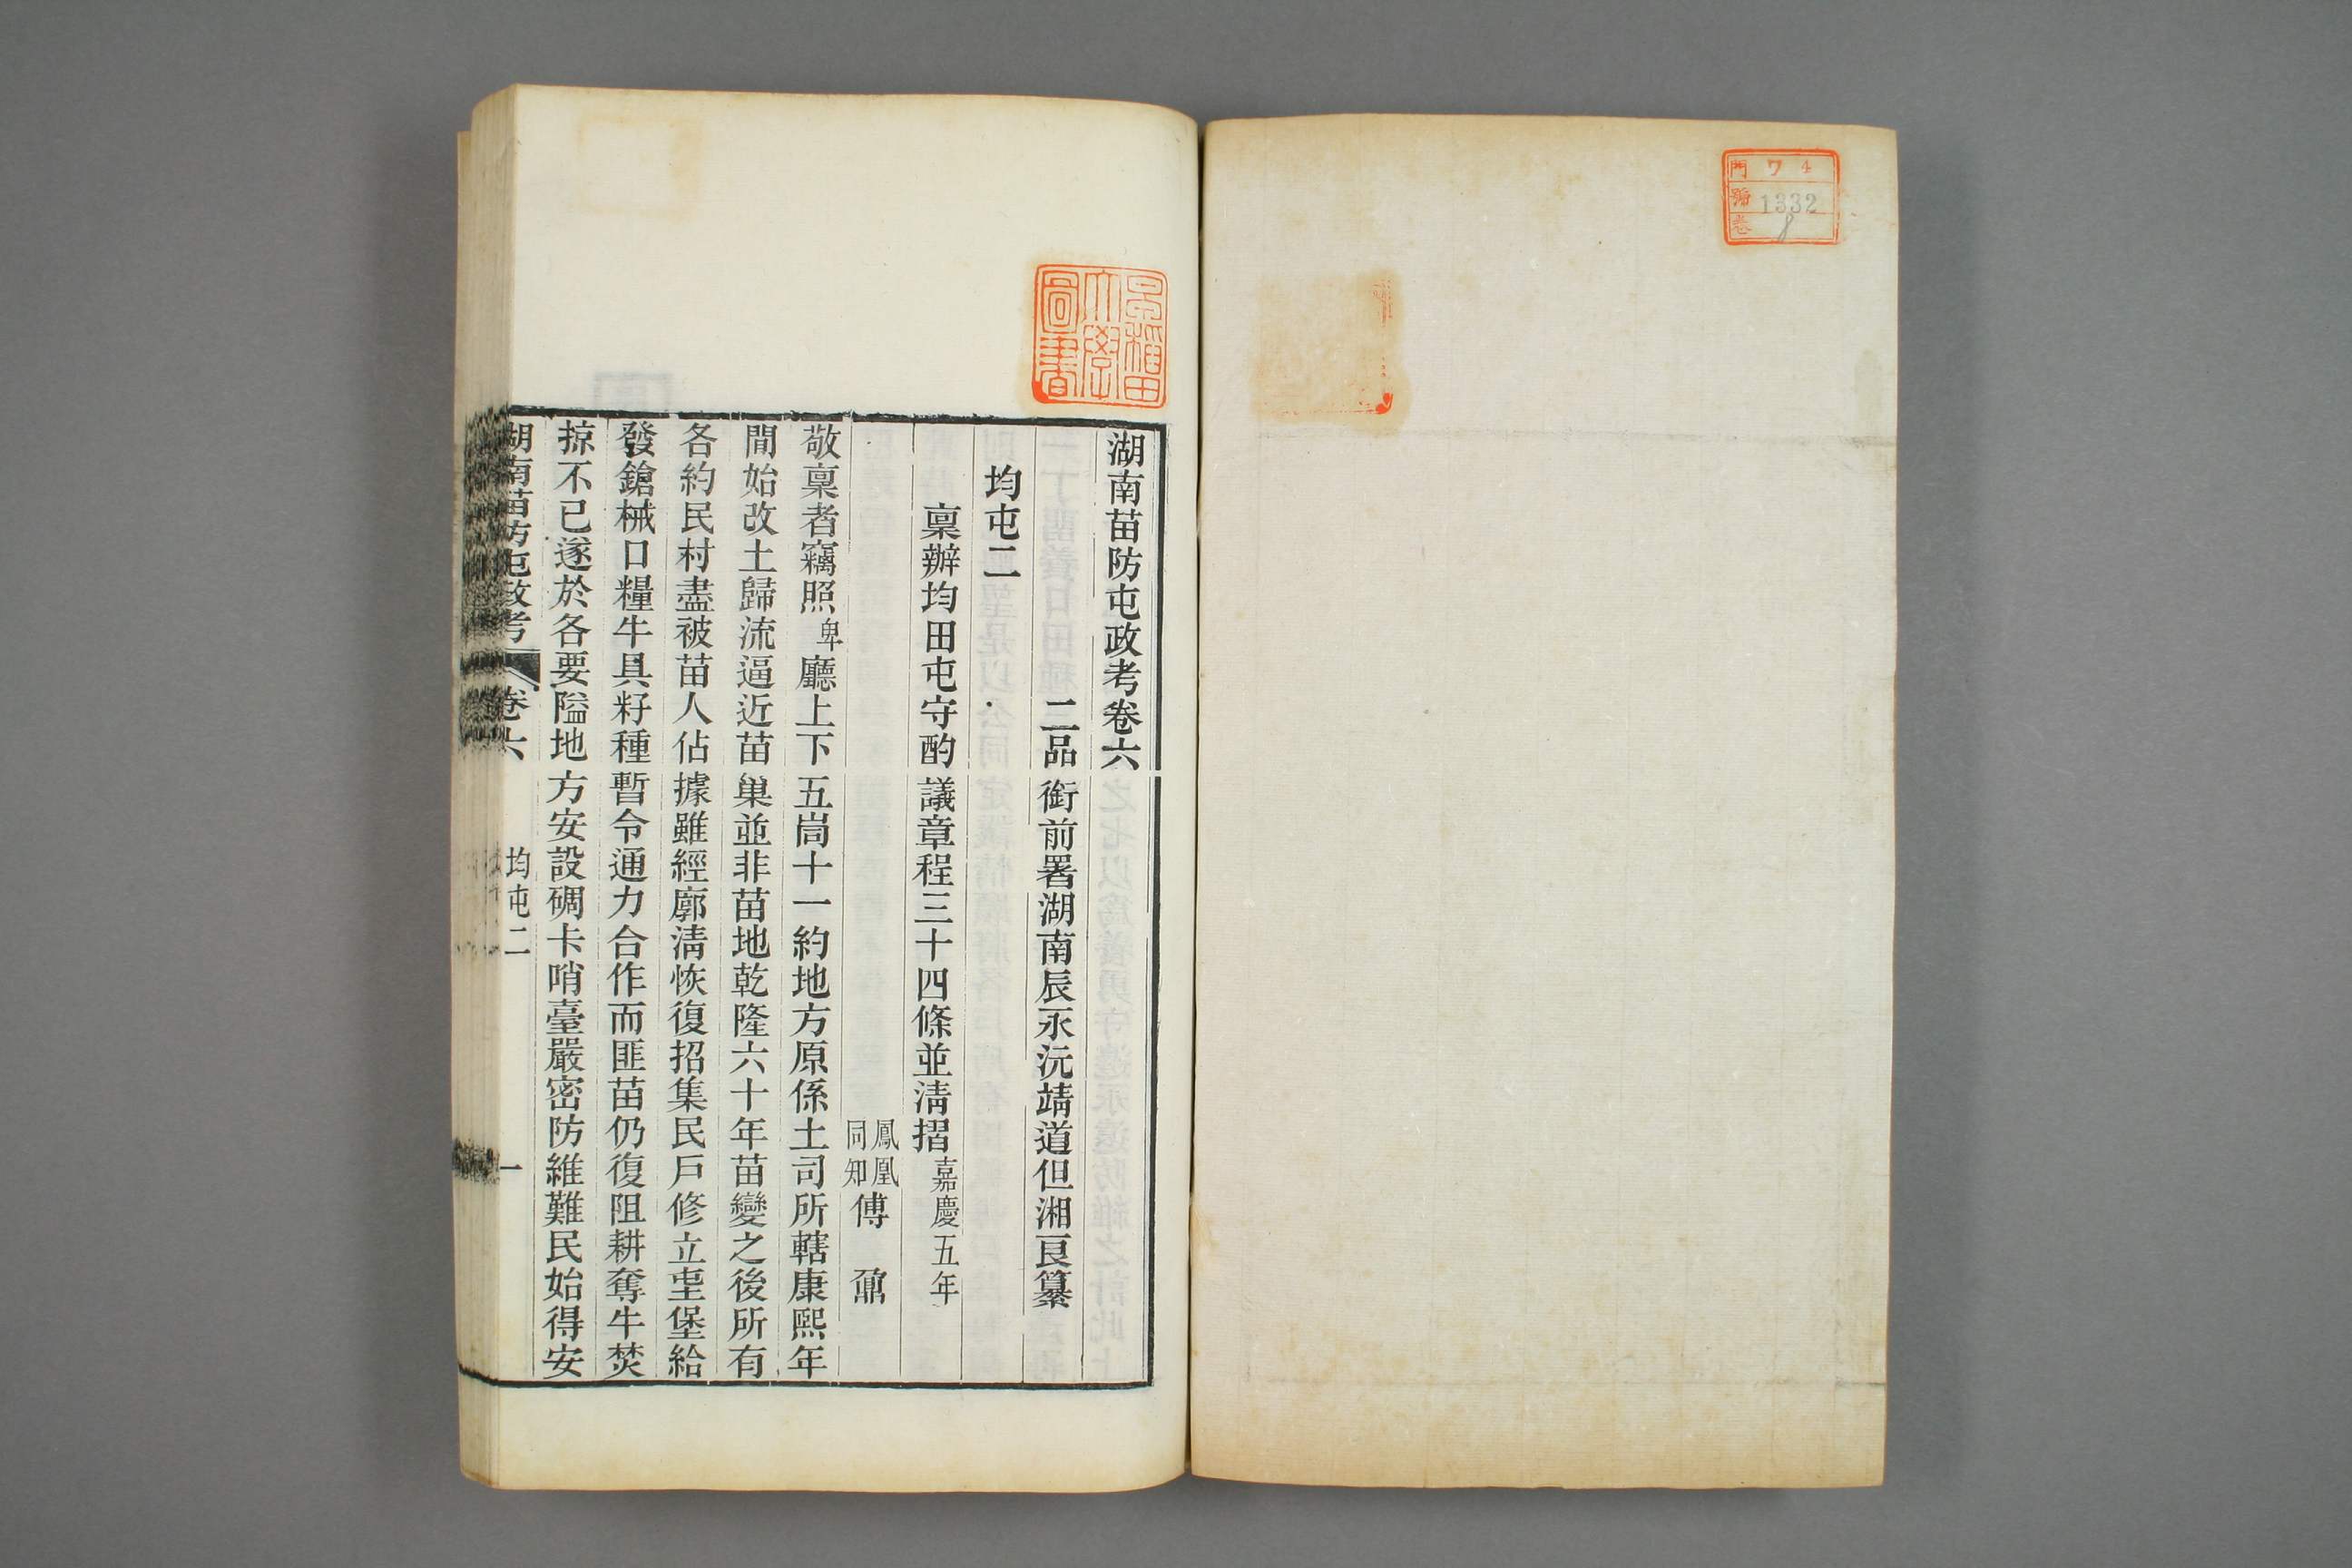 門 ワ 4
號 1332
卷 8
早稻田大學圖書
湖南苗防屯政考卷六
二品銜前署湖南辰永沅靖道但湘良纂
均屯二
稟辦均田屯守酌議章程三十四條並淸摺嘉慶五年
鳳凰同知傅鼐
敬稟者竊照卑廳上下五峝十一約地方原係土司所轄康熙年
間始改土歸流逼近苗巢並非苗地乾隆六十年苗變之後所有
各約民村盡被苗人佔據雖經廓淸恢復招集民戶修立屯堡給
發鎗械口糧牛具籽種暫令通力合作而匪苗仍復阻耕奪牛焚
掠不已遂於各要隘地方安設碉卡哨臺嚴密防維難民始得安
湖南苗防屯政考 卷六 均屯二 一